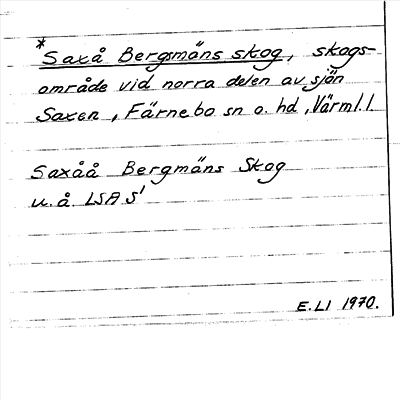 * Saxå Bergsmäns skog, skogs-
område vid norra delen av sjön
Saxen, Färnebo sn o. hd, Värml. l
Saxåå Bergmäns Skog
u. å. LSA S1
E. LI 1970.